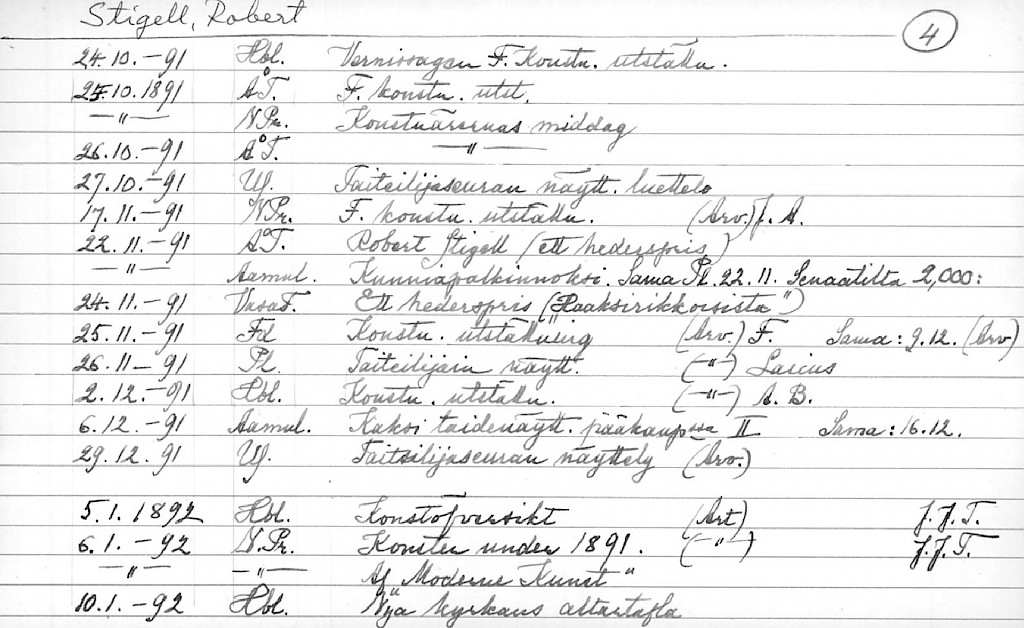 Stigell, Robert
4
24.10.-91 Hbl. Vernissagen F. Konstn. utställn.
25.10.1891 ÅT. F. konstn. utst.
—"— N.Pr. Konstnärernas middag
26.10.-91 ÅT. —"—
27.10.-91 U.S. Taiteilijaseuran näytt. luettelo
17.11.-91 N.Pr. F. konstn. utställn. (Arv.) J. A.
22.11.-91 ÅT. Robert Stigell (ett hederspris)
—"— Aamul. Kunniapalkinnoksi. Sama Pl. 22.11. Senaatilta 2,000:
24.11.-91 VasaT. Ett hederspris ("Haaksirikkoisista")
25.11.-91 Fd Konstn. utställning (Arv.) F. Sama: 9.12. (Arv)
26.11-91 Pl. Taiteilijain näytt. (-"-) Lascius
2.12.-91 Hbl. Konstn. utställn. (-"-) A. B.
6.12.-91 Aamul. Kaksi taidenäytt. pääkaupssa II Sama: 16.12.
29.12.91 U.S. Taiteilijaseuran näyttely (Arv.)
5.1.1892 Hbl. Konstöfversikt (Art) J.J.T.
6.1.-92 N.Pr. Konsten under 1891. (-"-) J.J.T.
—"— —"— Af "Moderne Kunst"
10.1.-92 Hbl. Nya kyrkans altartafla